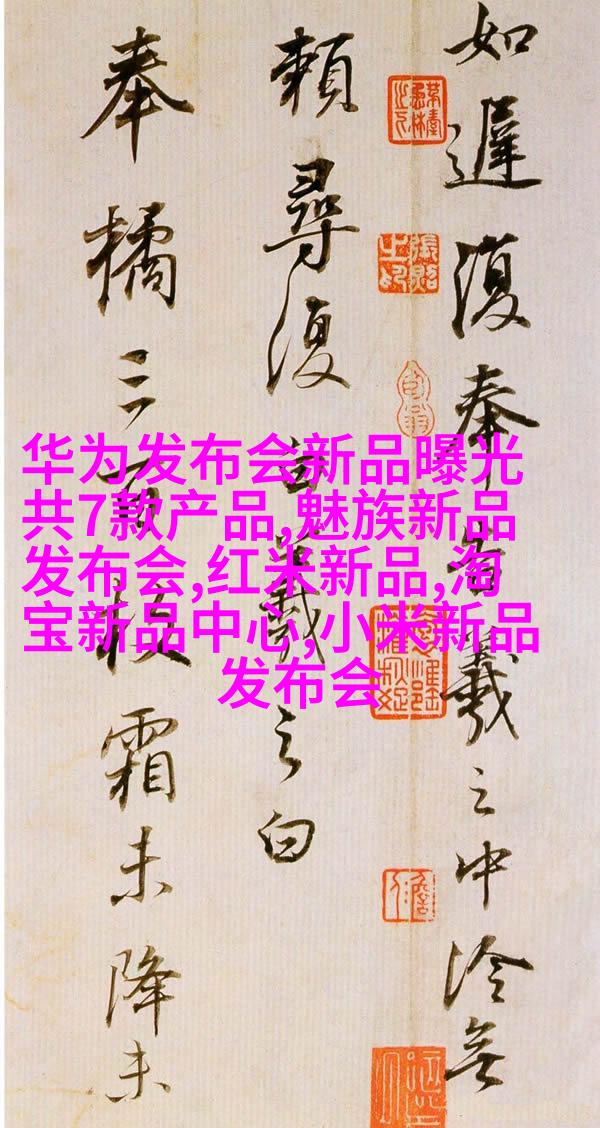 华为发布会新品曝光
共7款产品,魅族新品
发布会,红米新品,淘
宝新品中心,小米新品
发布会
如遲復奉告羲之中冷無
賴尋復白羲之白
奉橘三百枚霜未降未